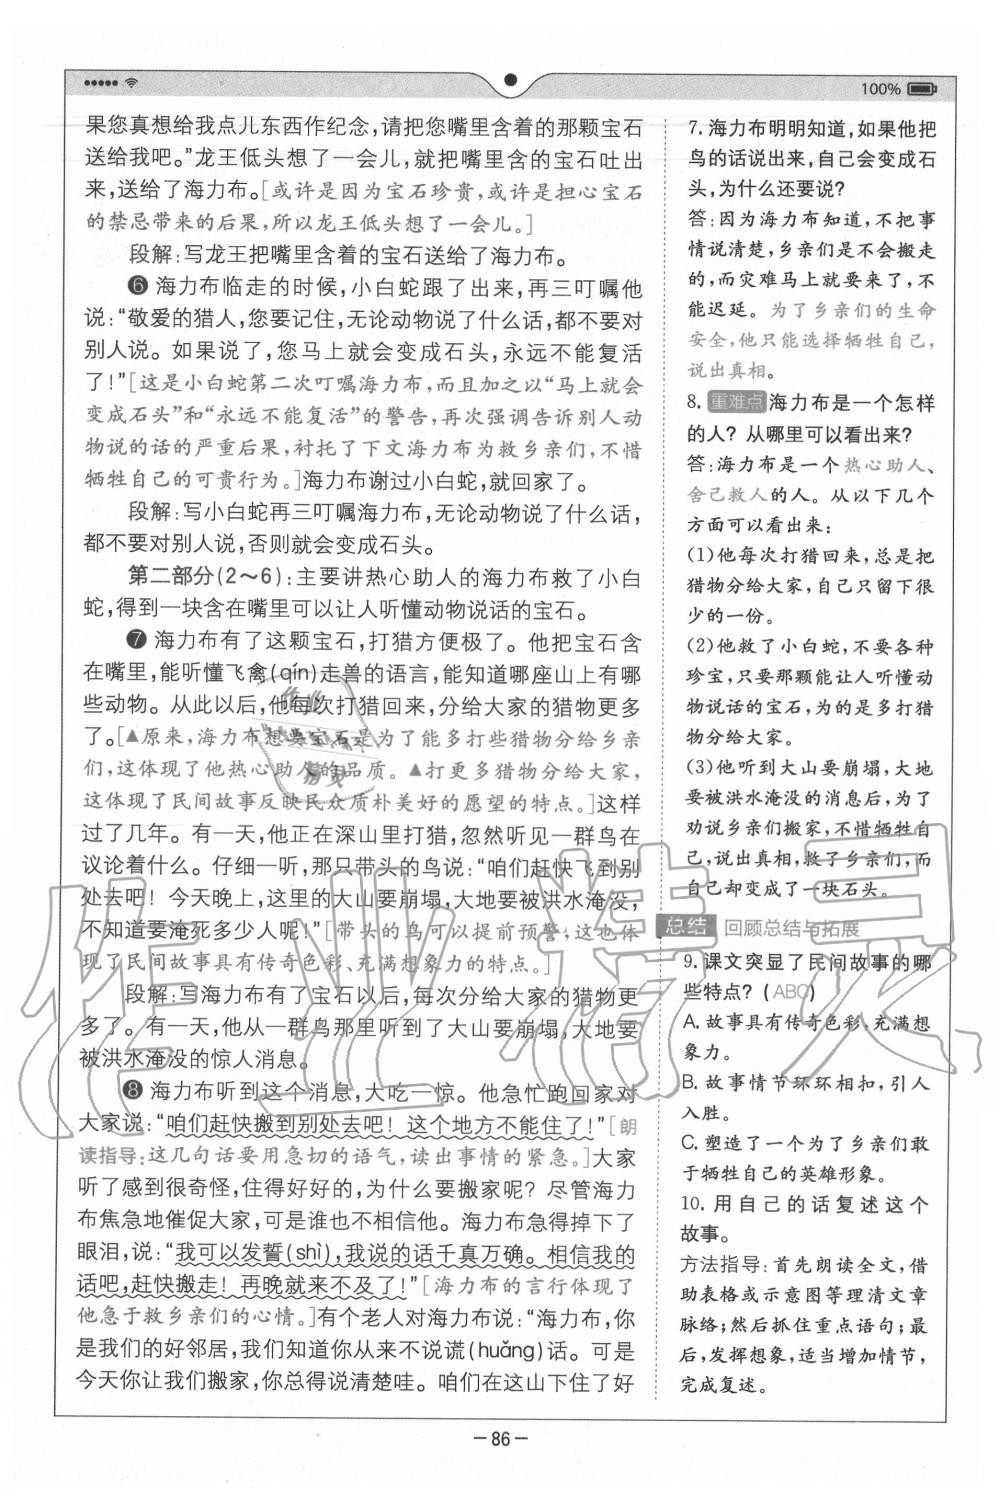 100%
果您真想给我点儿东西作纪念,请把您嘴里含着的那颗宝石
送给我吧。”龙王低头想了一会儿,就把嘴里含的宝石吐出
来,送给了海力布。[或许是因为宝石珍贵,或许是担心宝石
的禁忌带来的后果,所以龙王低头想了一会儿。]
段解:写龙王把嘴里含着的宝石送给了海力布。
❻ 海力布临走的时候,小白蛇跟了出来,再三叮嘱他
说:“敬爱的猎人,您要记住,无论动物说了什么话,都不要对
别人说。如果说了,您马上就会变成石头,永远不能复活
了!”[这是小白蛇第二次叮嘱海力布,而且加之以“马上就会
变成石头”和“永远不能复活”的警告,再次强调告诉别人动
物说的话的严重后果,衬托了下文海力布为救乡亲们,不惜
牺牲自己的可贵行为。]海力布谢过小白蛇,就回家了。
段解:写小白蛇再三叮嘱海力布,无论动物说了什么话,
都不要对别人说,否则就会变成石头。
第二部分(2～6):主要讲热心助人的海力布救了小白
蛇,得到一块含在嘴里可以让人听懂动物说话的宝石。
❼ 海力布有了这颗宝石,打猎方便极了。他把宝石含
在嘴里,能听懂飞禽(qín)走兽的语言,能知道哪座山上有哪
些动物。从此以后,他每次打猎回来,分给大家的猎物更多
了。[▲原来,海力布想要宝石是为了能多打些猎物分给乡亲
们,这体现了他热心助人的品质。▲打更多猎物分给大家,
这体现了民间故事反映民众质朴美好的愿望的特点。]这样
过了几年。有一天,他正在深山里打猎,忽然听见一群鸟在
议论着什么。仔细一听,那只带头的鸟说:“咱们赶快飞到别
处去吧!今天晚上,这里的大山要崩塌,大地要被洪水淹没,
不知道要淹死多少人呢!”[带头的鸟可以提前预警,这也体
现了民间故事具有传奇色彩、充满想象力的特点。]
段解:写海力布有了宝石以后,每次分给大家的猎物更
多了。有一天,他从一群鸟那里听到了大山要崩塌,大地要
被洪水淹没的惊人消息。
❽ 海力布听到这个消息,大吃一惊。他急忙跑回家对
大家说:“咱们赶快搬到别处去吧!这个地方不能住了!”[朗
读指导:这几句话要用急切的语气,读出事情的紧急。]大家
听了感到很奇怪,住得好好的,为什么要搬家呢?尽管海力
布焦急地催促大家,可是谁也不相信他。海力布急得掉下了
眼泪,说:“我可以发誓(shì),我说的话千真万确。相信我的
话吧,赶快搬走!再晚就来不及了!”[海力布的言行体现了
他急于救乡亲们的心情。]有个老人对海力布说:“海力布,你
是我们的好邻居,我们知道你从来不说谎(huǎng)话。可是
今天你让我们搬家,你总得说清楚哇。咱们在这山下住了好
7. 海力布明明知道,如果他把
鸟的话说出来,自己会变成石
头,为什么还要说?
答:因为海力布知道,不把事
情说清楚,乡亲们是不会搬走
的,而灾难马上就要来了,不
能迟延。为了乡亲们的生命
安全,他只能选择牺牲自己,
说出真相。
8. 重难点 海力布是一个怎样
的人?从哪里可以看出来?
答:海力布是一个热心助人、
舍己救人的人。从以下几个
方面可以看出来:
(1)他每次打猎回来,总是把
猎物分给大家,自己只留下很
少的一份。
(2)他救了小白蛇,不要各种
珍宝,只要那颗能让人听懂动
物说话的宝石,为的是多打猎
物分给大家。
(3)他听到大山要崩塌,大地
要被洪水淹没的消息后,为了
劝说乡亲们搬家,不惜牺牲自
己,说出真相,救了乡亲们,而
自己却变成了一块石头。
总结 回顾总结与拓展
9. 课文突显了民间故事的哪
些特点?(ABC)
A. 故事具有传奇色彩,充满想
象力。
B. 故事情节环环相扣,引人
入胜。
C. 塑造了一个为了乡亲们敢
于牺牲自己的英雄形象。
10. 用自己的话复述这个
故事。
方法指导:首先朗读全文,借
助表格或示意图等理清文章
脉络;然后抓住重点语句;最
后,发挥想象,适当增加情节,
完成复述。
作业精灵
— 86 —